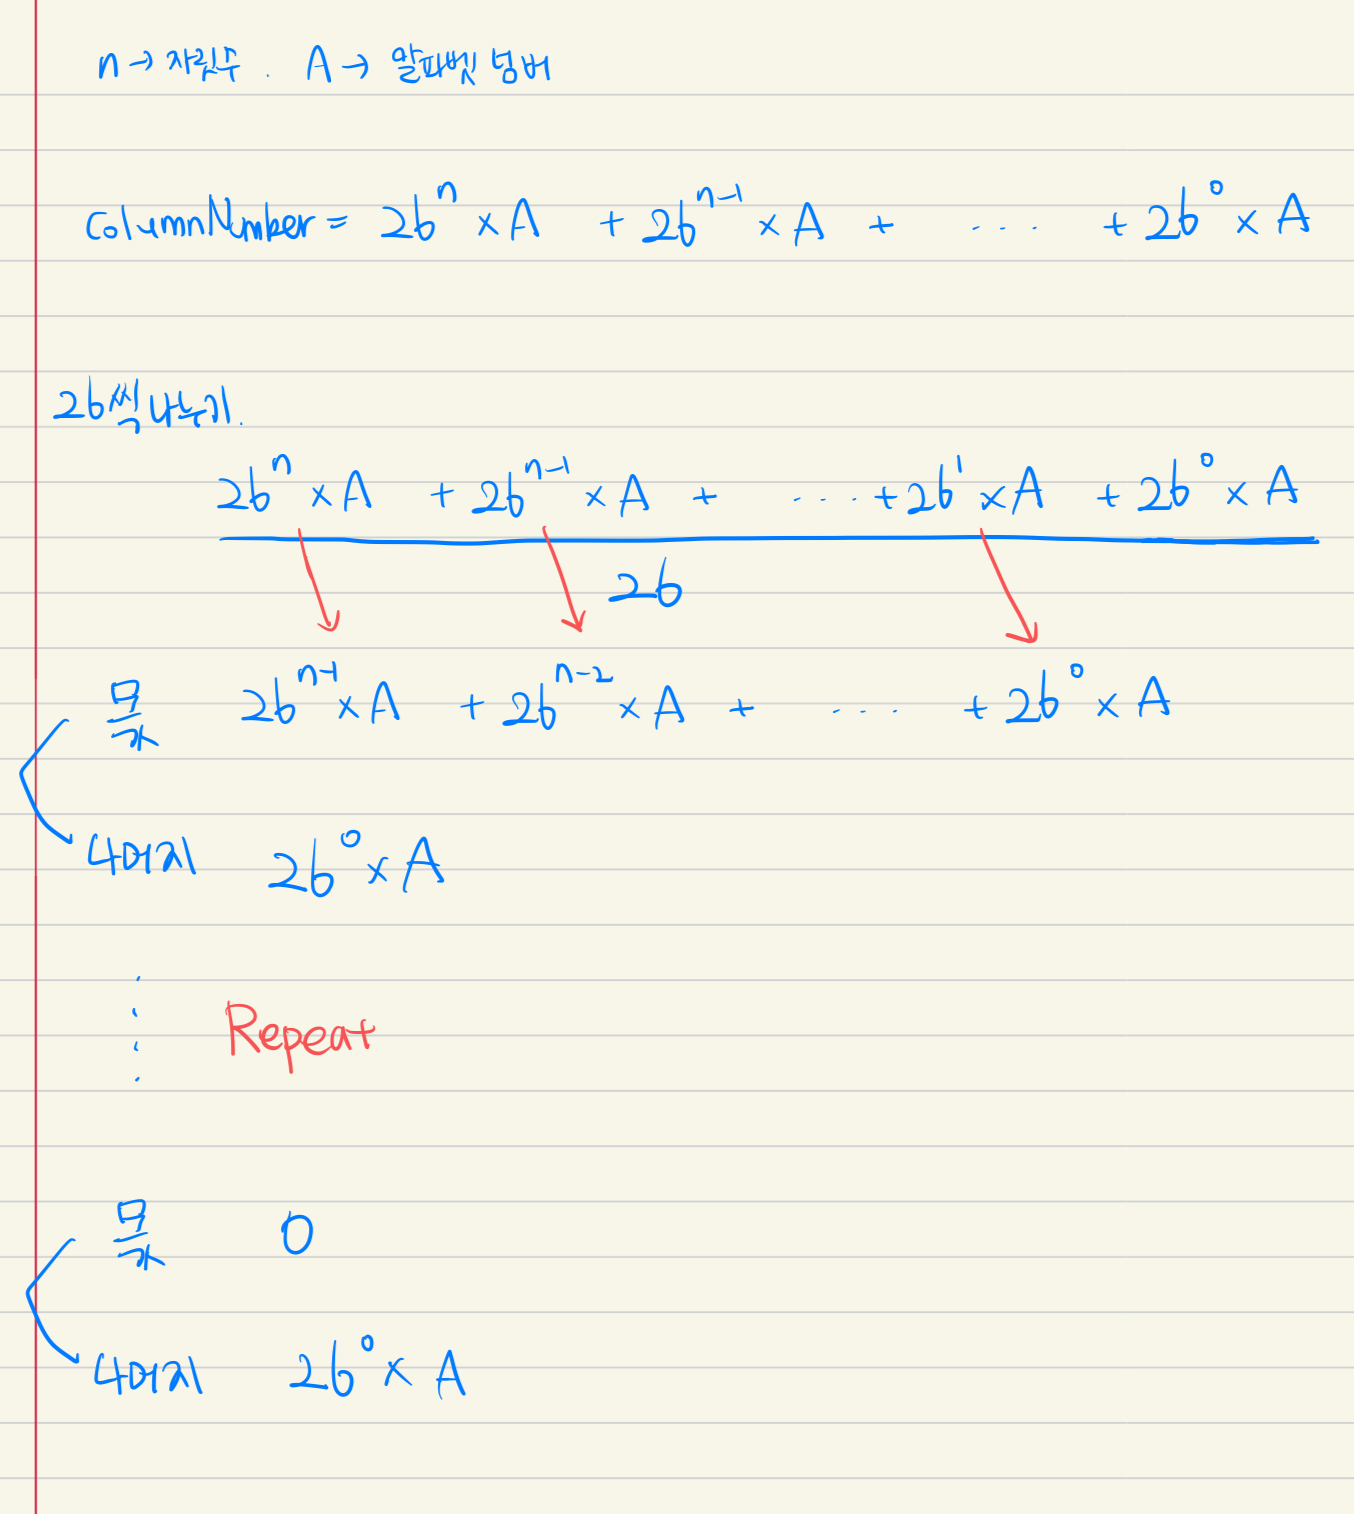 n → 자릿수. A → 알파벳 넘버
ColumnNumber = 26ⁿ × A + 26ⁿ⁻¹ × A + ... + 26⁰ × A
26씩 나누기.
26ⁿ × A + 26ⁿ⁻¹ × A + ... + 26¹ × A + 26⁰ × A
26
몫 26ⁿ⁻¹ × A + 26ⁿ⁻² × A + ... + 26⁰ × A
나머지 26⁰ × A
Repeat
몫 0
나머지 26⁰ × A